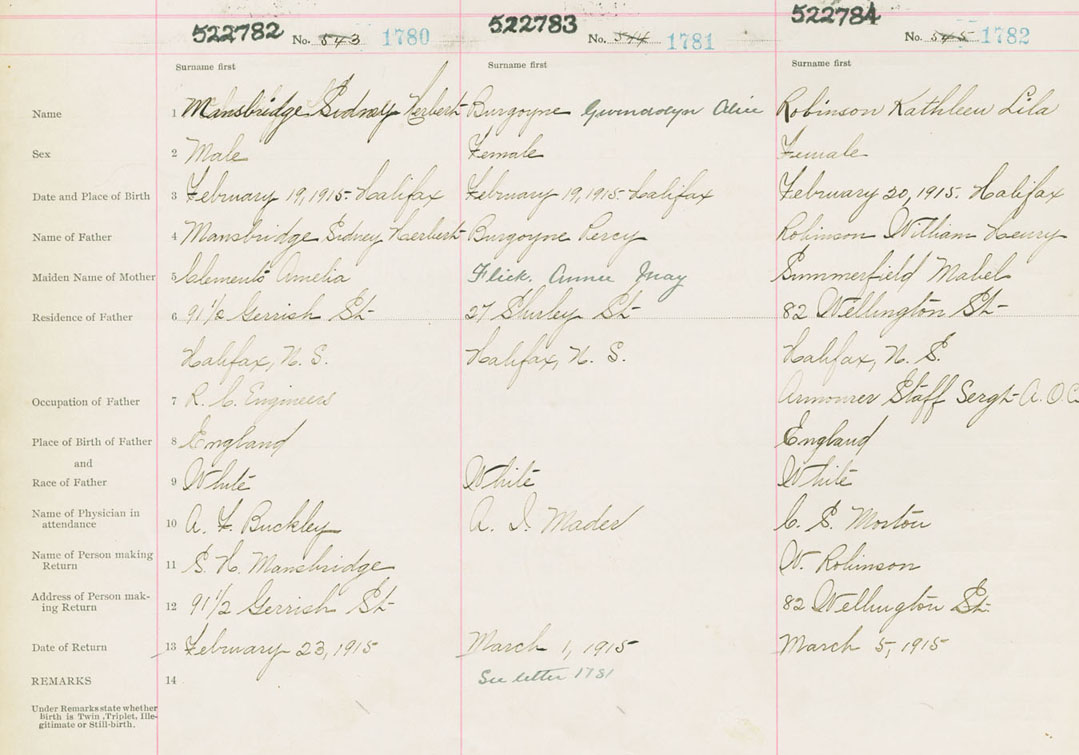 522782 No. 543 1780 522783 No. 544 1781 522784 No. 545 1782
Surname first Surname first Surname first
Name 1 Mansbridge Sidney Herbert Burgoyne Gwendolyn Alice Robinson Kathleen Lila
Sex 2 Male Female Female
Date and Place of Birth 3 February 19, 1915. Halifax February 19, 1915. Halifax February 20, 1915. Halifax
Name of Father 4 Mansbridge Sidney Herbert Burgoyne Percy Robinson William Henry
Maiden Name of Mother 5 Clements Amelia Flick. Annie May Summerfield Mabel
Residence of Father 6 91½ Gerrish St. 27 Shirley St. 82 Wellington St.
Halifax, N. S. Halifax, N. S. Halifax, N. S.
Occupation of Father 7 R. C. Engineers Armourer Staff Sergt. A. O. C.
Place of Birth of Father 8 England England
and
Race of Father 9 White White White
Name of Physician in
attendance 10 A. F. Buckley A. I. Mader C. S. Morton
Name of Person making
Return 11 S. H. Mansbridge W. Robinson
Address of Person mak-
ing Return 12 91 1/2 Gerrish St. 82 Wellington St.
Date of Return 13 February 23, 1915 March 1, 1915 March 5, 1915
REMARKS 14 See letter 1781
Under Remarks state whether
Birth is Twin, Triplet, Ille-
gitimate or Still-birth.